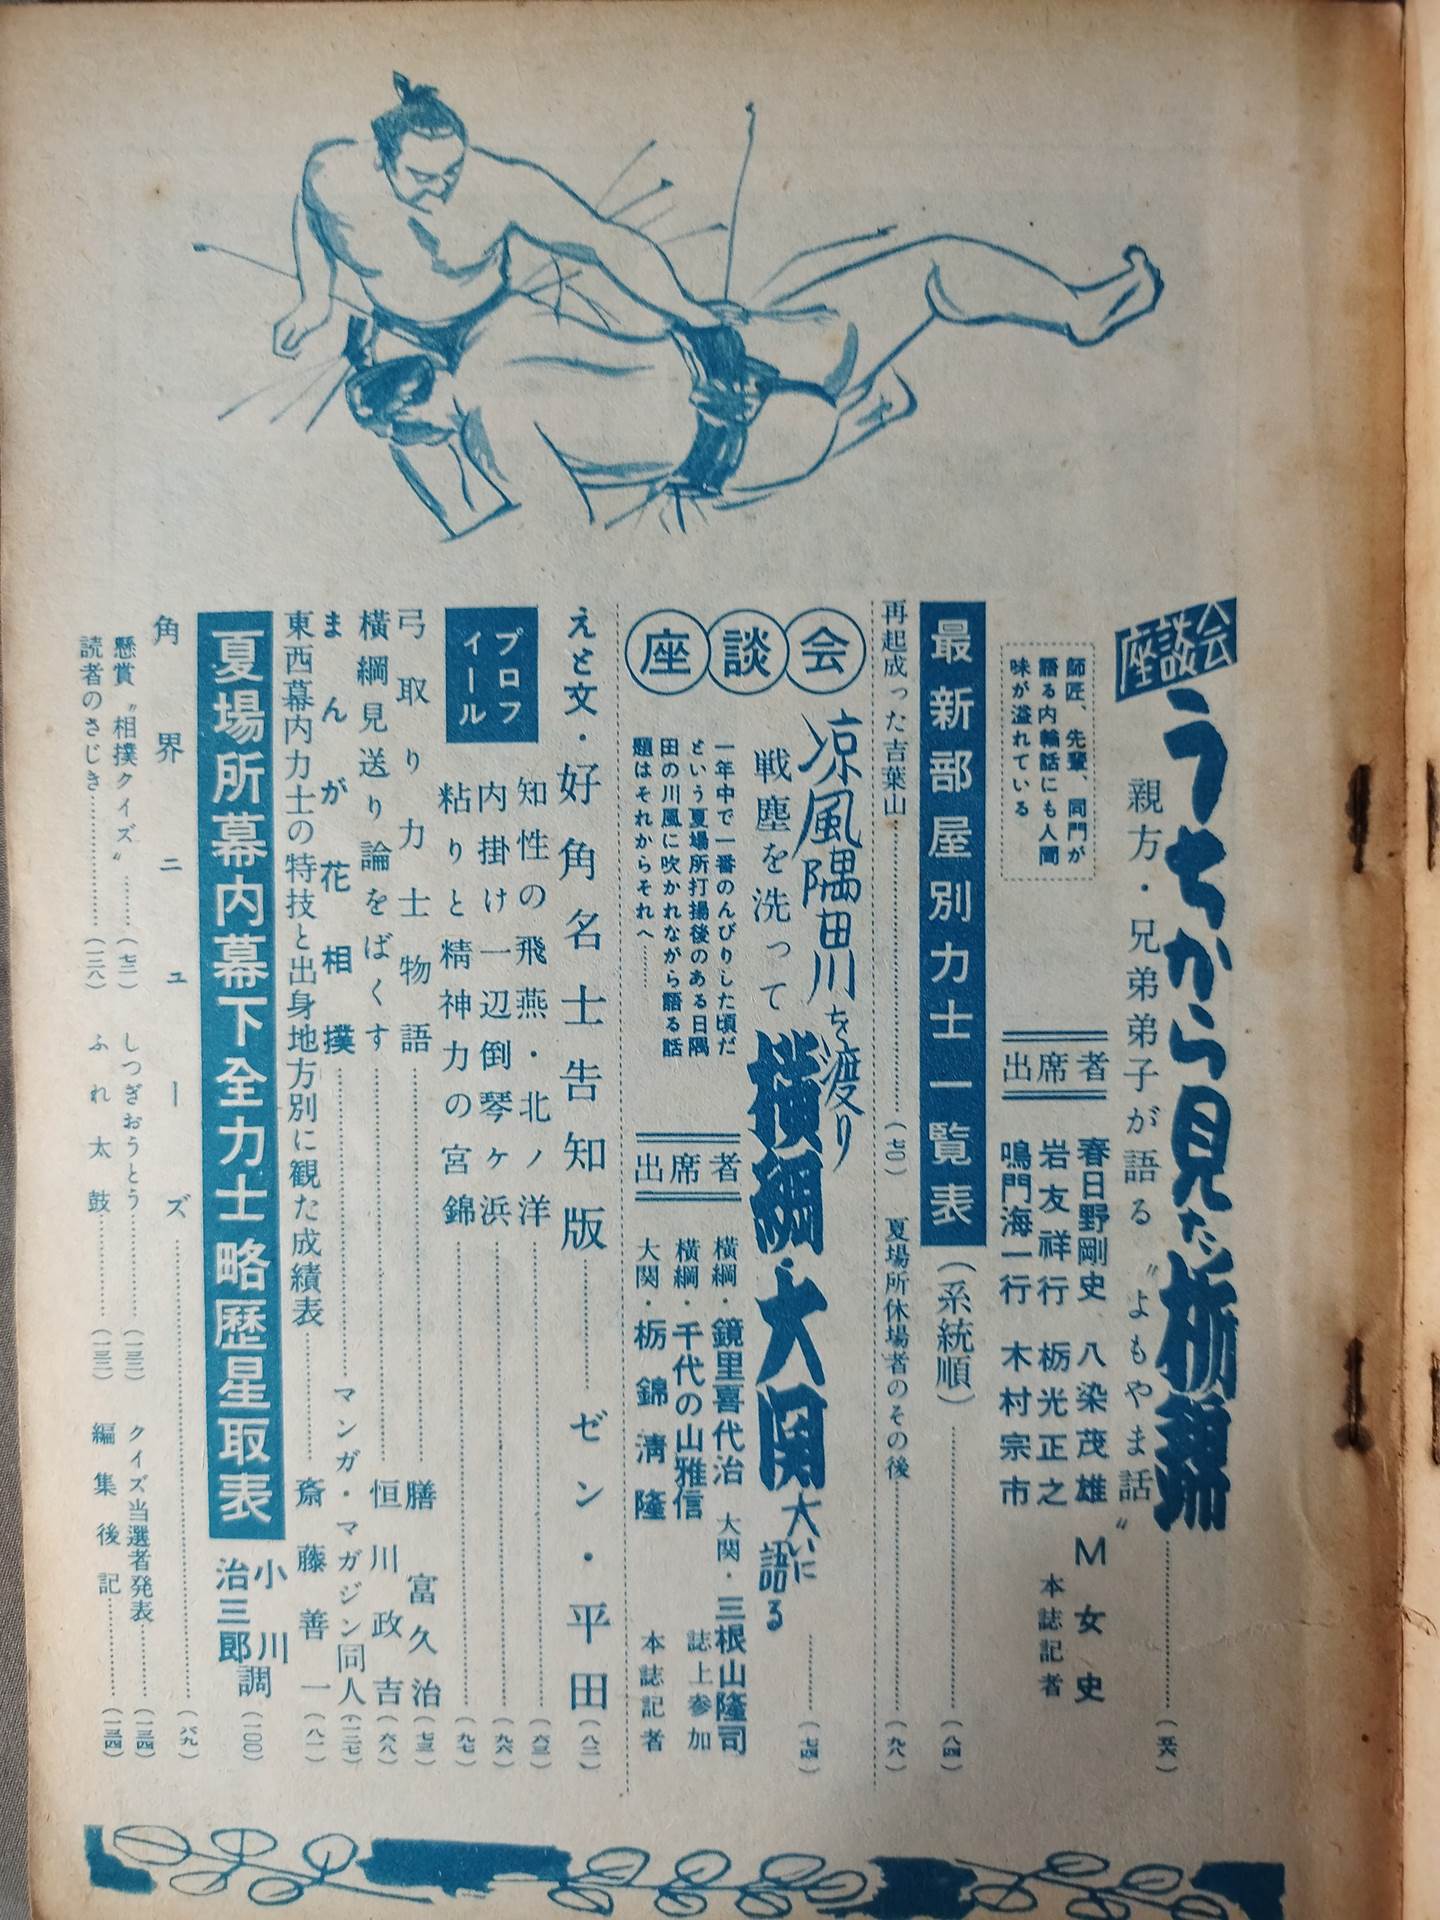 座談会
うちから見た栃錦
親方・兄弟弟子が語る〝よもやま話〟……(五六)
師匠、先輩、同門が
語る内輪話にも人間
味が溢れている
出席者
春日野剛史 八染茂雄 M女史
岩友祥行 栃光正之 本誌記者
鳴門海一行 木村宗市
最新部屋別力士一覧表(系統順)……(八四)
再起成った吉葉山……(七〇)
夏場所休場者のその後……(九八)
座談会
凉風隅田川を渡り
戦塵を洗って
横綱・大関大いに語る……(七四)
一年中で一番のんびりした頃だ
という夏場所打揚後のある日隅
田の川風に吹かれながら語る話
題はそれからそれへ……
出席者
横綱・鏡里喜代治 大関・三根山隆司
横綱・千代の山雅信 誌上参加
大関・栃錦清隆 本誌記者
えと文・好角名士告知版……ゼン・平田(八二)
プロフイール
知性の飛燕・北ノ洋……(六三)
内掛け一辺倒琴ヶ浜……(九六)
粘りと精神力の宮錦……(九七)
弓取り力士物語……膳富久治(七三)
横綱見送り論をばくす……恒川政吉(六八)
まんが花相撲……マンガ・マガジン同人(一二七)
東西幕内力士の特技と出身地方別に観た成績表……斎藤善一(八一)
夏場所幕内幕下全力士略歴星取表
小川治三郎調(一〇〇)
角界ニューズ……(六九)
懸賞〝相撲クイズ〟……(七二)
しつぎおうとう……(一三二)
クイズ当選者発表……(一三四)
読者のさじき……(一二八)
ふれ太鼓……(一三三)
編集後記……(一三四)